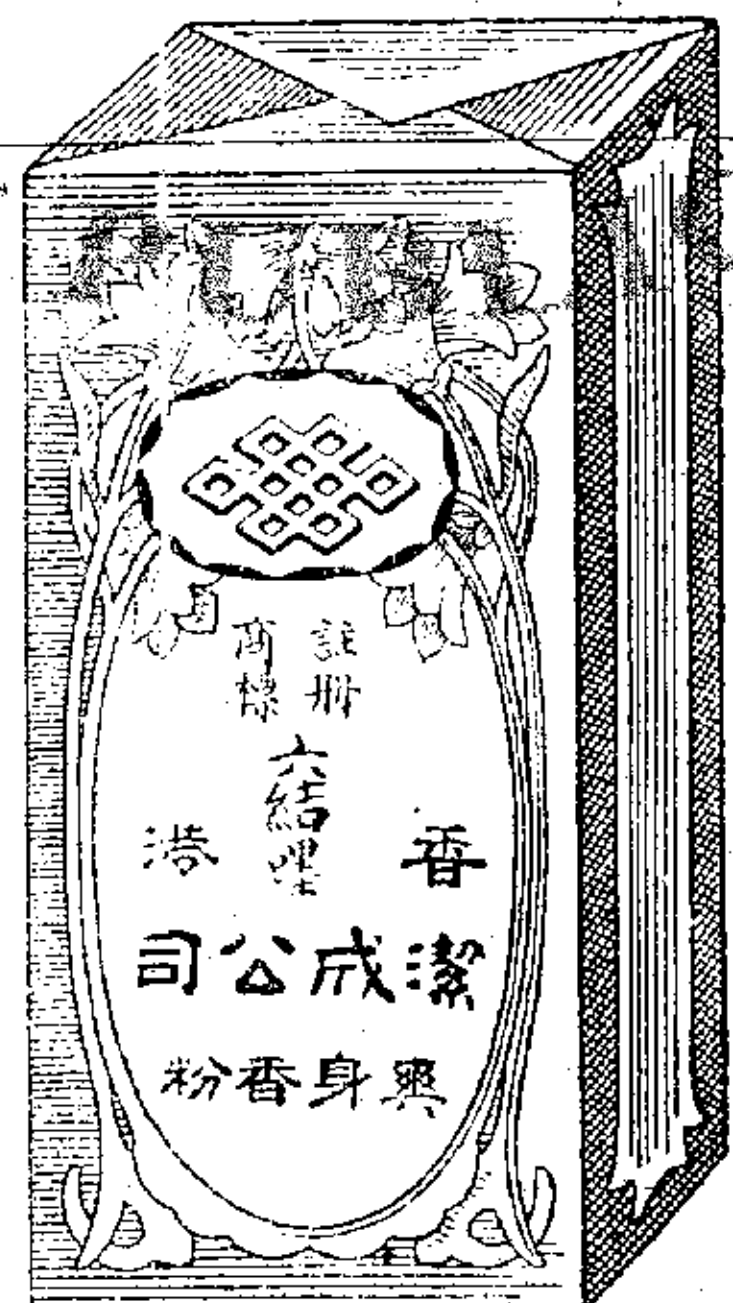 註冊
商標
六結嘜
香港
潔成公司
爽身香粉